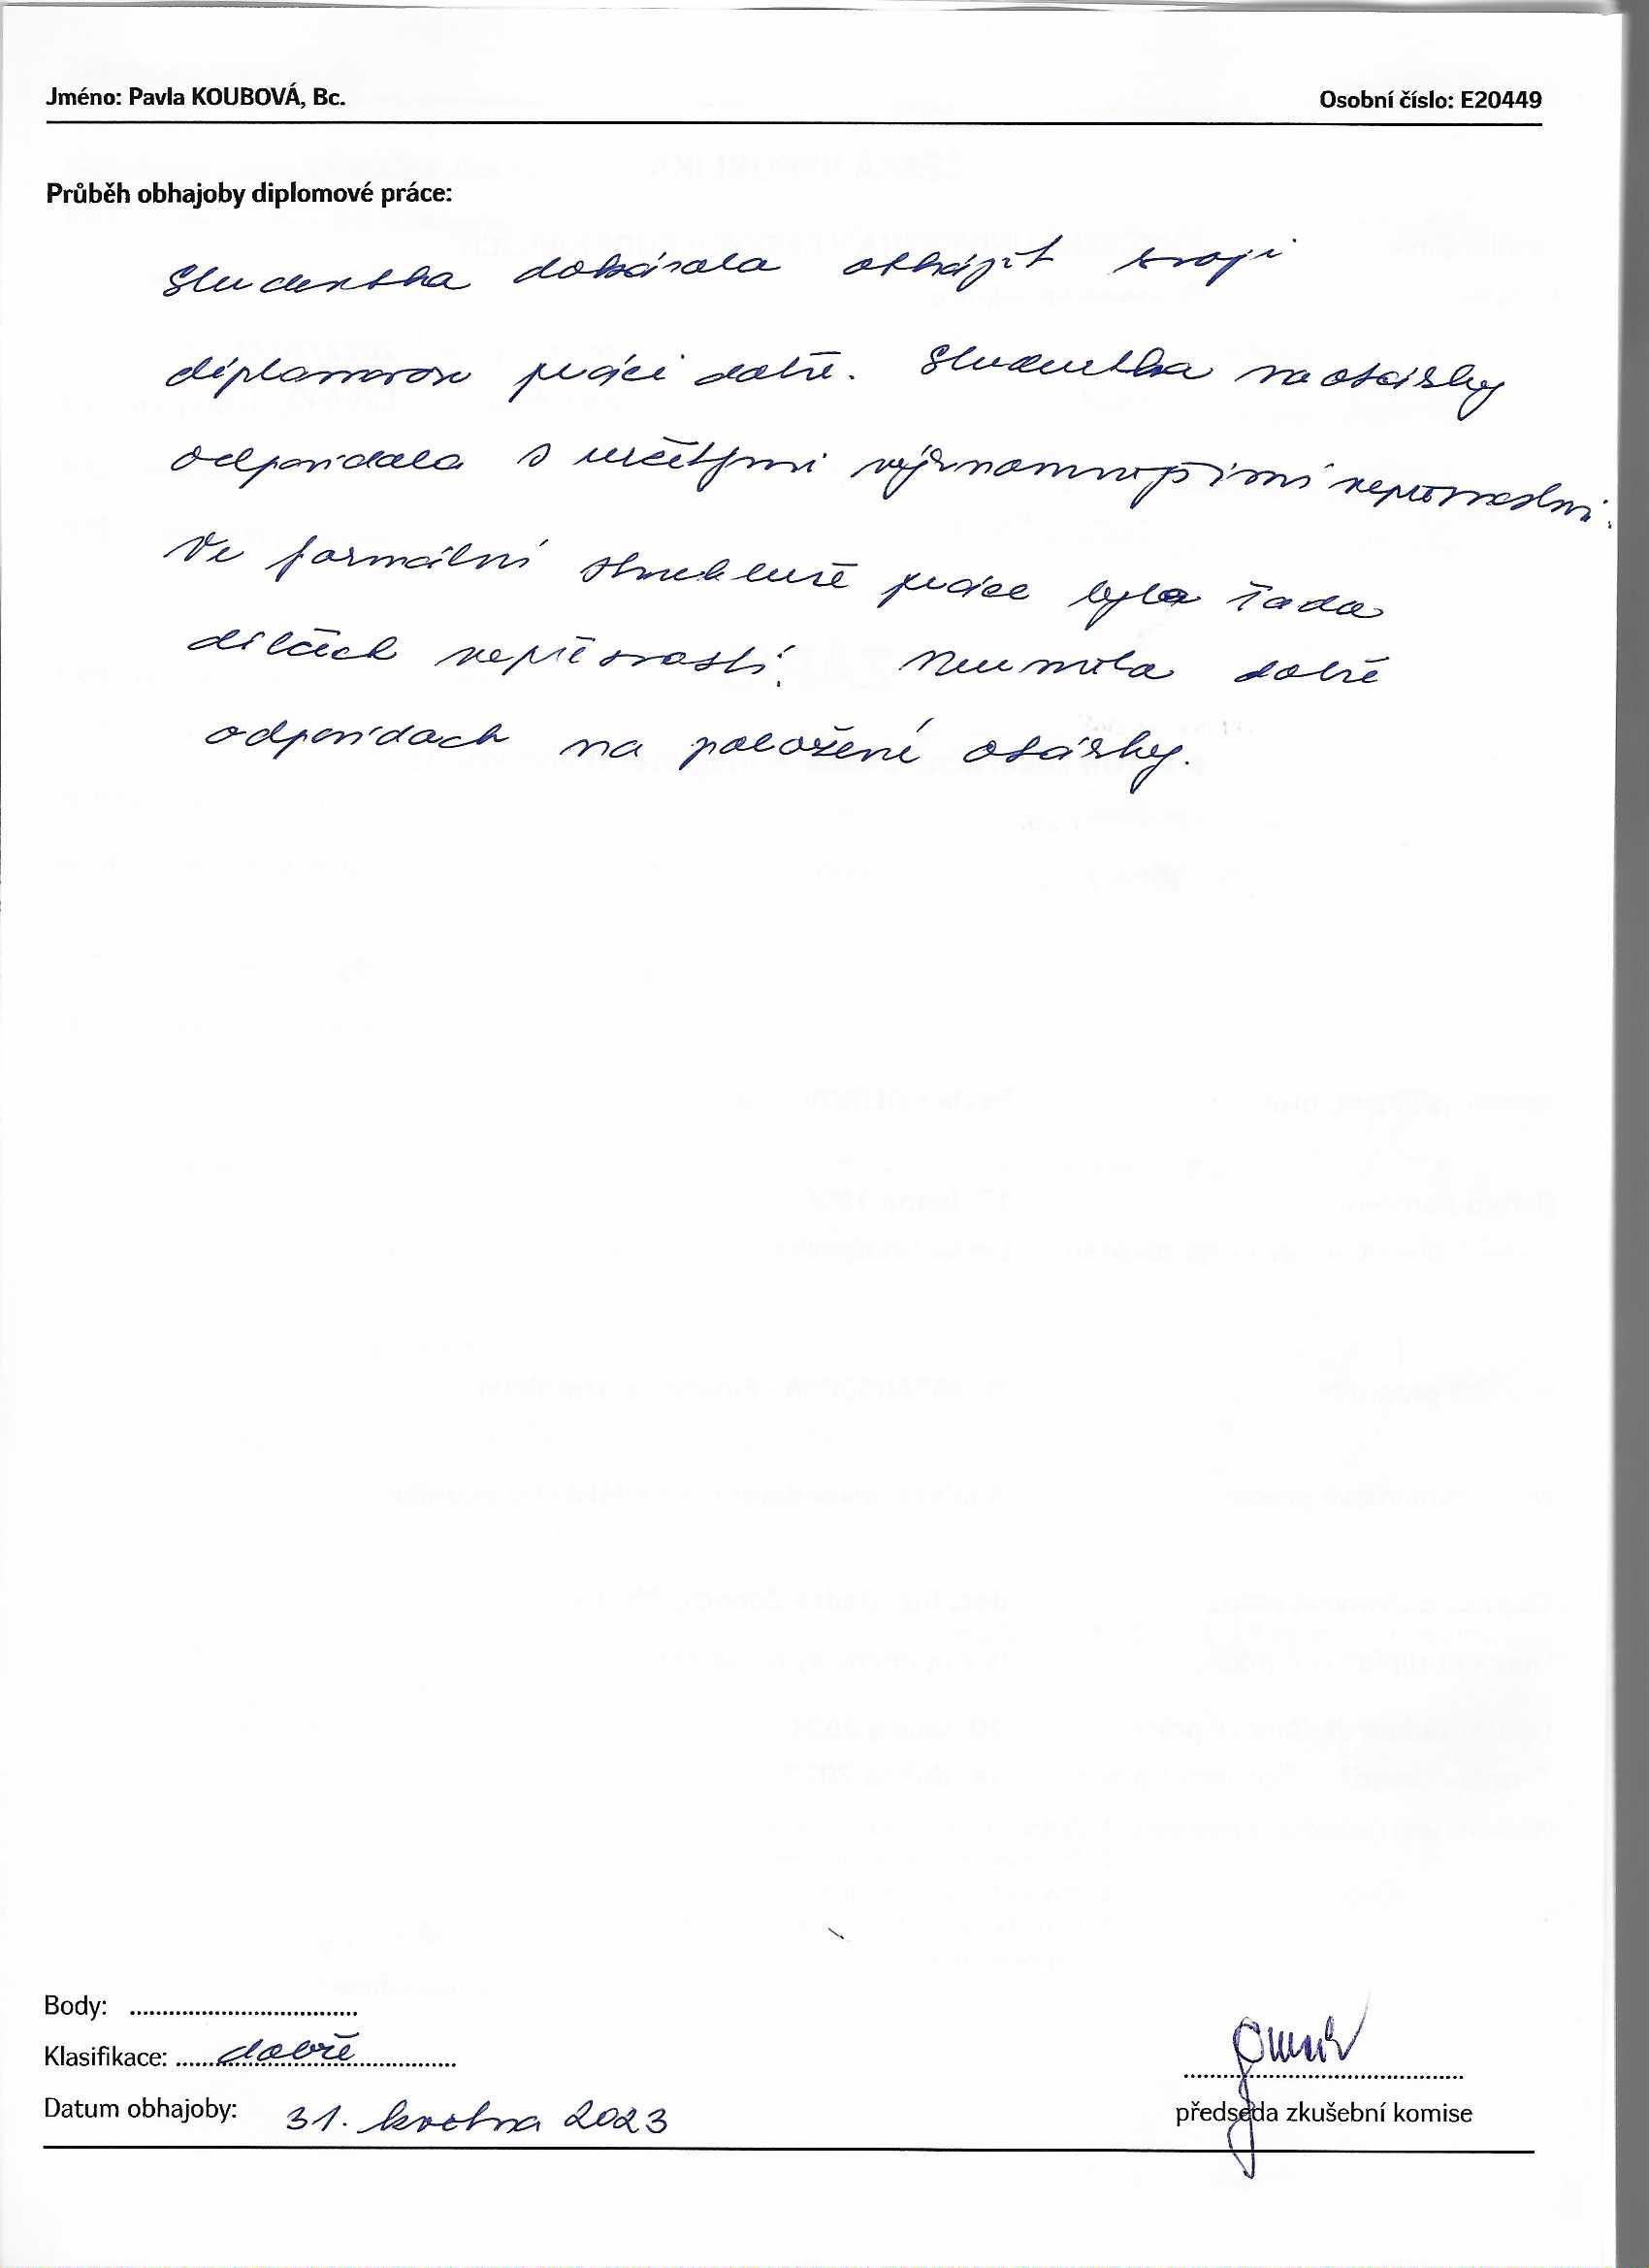 Jméno: Pavla KOUBOVÁ, Bc. Osobní číslo: E20449
Průběh obhajoby diplomové práce:
Studentka dokázala obhájit svoji
diplomovou práci dobře. Studentka na otázky
odpovídala s určitými významnějšími nepřesnostmi.
Ve formální struktuře práce byla řada
dílčích nepřesností. Neuměla dobře
odpovídach na položené otázky.
Body: ...................................
Klasifikace: dobře
Datum obhajoby: 31. května 2023
předseda zkušební komise